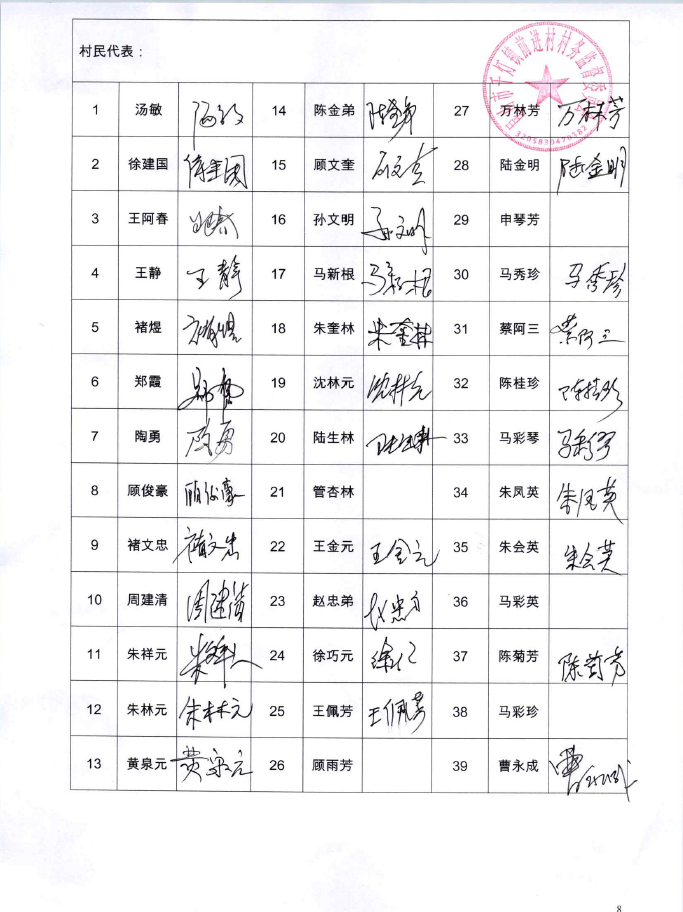 村民代表：
市千灯镇前进村村务监督委员会
3205830470382
1 汤敏 汤敏 14 陈金弟 陈金弟 27 万林芳 万林芳
2 徐建国 徐建国 15 顾文奎 顾文奎 28 陆金明 陆金明
3 王阿春 王阿春 16 孙文明 孙文明 29 申琴芳
4 王静 王静 17 马新根 马新根 30 马秀珍 马秀珍
5 褚煜 褚煜 18 朱奎林 朱奎林 31 蔡阿三 蔡阿三
6 郑霞 郑霞 19 沈林元 沈林元 32 陈桂珍 陈桂珍
7 陶勇 陶勇 20 陆生林 陆生林 33 马彩琴 马彩琴
8 顾俊豪 顾俊豪 21 管杏林 34 朱凤英 朱凤英
9 褚文忠 褚文忠 22 王金元 王金元 35 朱会英 朱会英
10 周建清 周建清 23 赵忠弟 赵忠弟 36 马彩英
11 朱祥元 朱祥元 24 徐巧元 徐巧元 37 陈菊芳 陈菊芳
12 朱林元 朱林元 25 王佩芳 王佩芳 38 马彩珍
13 黄泉元 黄泉元 26 顾雨芳 39 曹永成 曹永成
8